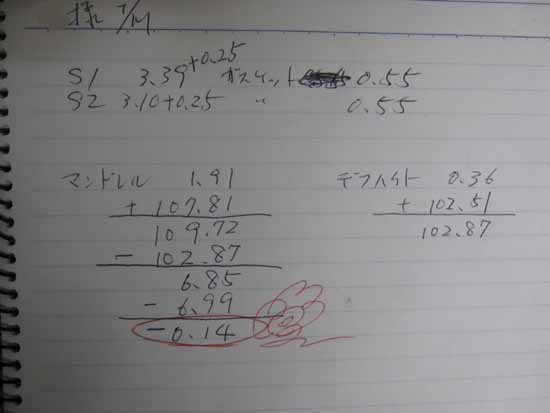 様 7/11
S1 3.39+0.25 ガスケット 0.55
S2 3.10+0.25 〃 0.55
マンドレル 1.91
+ 107.81
109.72
- 102.87
6.85
- 6.99
-0.14
デフハイト 0.36
+ 102.51
102.87